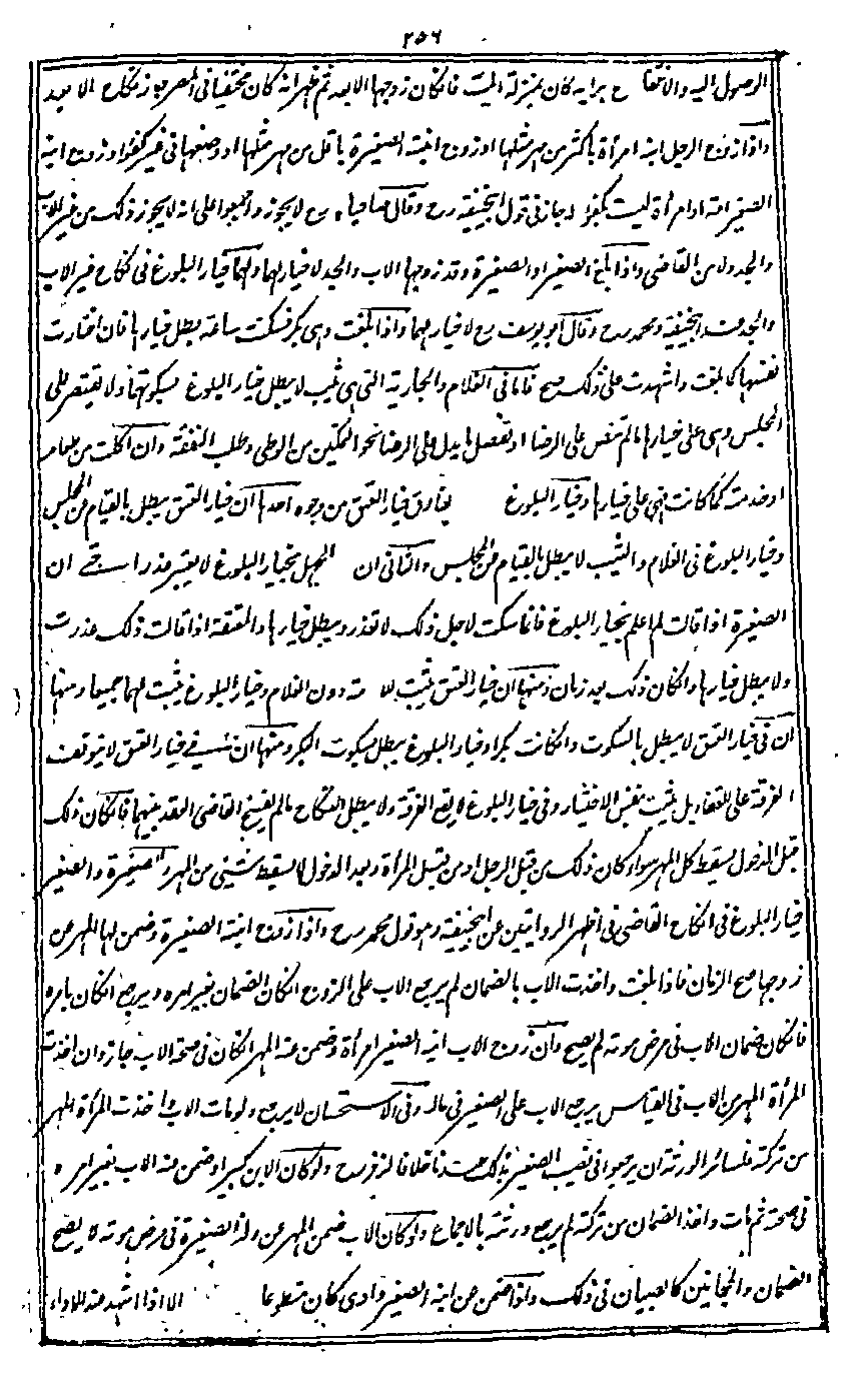 ٢٥٦
الوصول اليه والانتفاع برايه كان بمنزلة الميت فان كان زوجها الابعد ثم ظهر انه كان مختفيا فى المصر جاز نكاح الابعد
واذا زوج الرجل ابنه امرأة باكثر من مهر مثلها او زوج ابنته الصغيرة باقل من مهر مثلها او وضعها فى غير كفؤ او زوج ابنه
الصغير امة او امرأة ليست بكفؤ له جاز فى قول ابيحنيفة رح وقال صاحباه رح لا يجوز واجمعوا على انه لا يجوز ذلك من غير الاب
والجد ولا من القاضى واذا بلغ الصغير او الصغيرة وقد زوجها الاب والجد لا خيار لهما ولهما خيار البلوغ فى نكاح غير الاب
والجد عند ابيحنيفة ومحمد رح وقال ابو يوسف رح لا خيار لهما واذا بلغت وهى بكر فسكتت ساعة بطل خيارها فان اختارت
نفسها كما بلغت واشهدت على ذلك صح فاما فى الغلام والجارية التى هى ثيب لا يبطل خيار البلوغ بسكوتهما ولا يقتصر على
المجلس وهى على خيارها ما لم تنص على الرضا او تفعل ما يدل على الرضا نحو التمكين من الوطى وطلب النفقة وان اكلت من طعامه
او خدمت كما كانت فهى على خيارها وخيار البلوغ يفارق خيار العتق من وجوه احدها ان خيار العتق يبطل بالقيام عن المجلس
وخيار البلوغ فى الغلام والثيب لا يبطل بالقيام عن المجلس والثانى ان الجهل بخيار البلوغ لا يعتبر عذرا حتى ان
الصغيرة اذا قالت لم اعلم بخيار البلوغ فانما سكت لاجل ذلك لا تعذر ويبطل خيارها والمعتقة اذا قالت ذلك عذرت
ولا يبطل خيارها وان كان ذلك بعد زمان ومنها ان خيار العتق يثبت للامة دون الغلام وخيار البلوغ يثبت لهما جميعا ومنها
ان فى خيار العتق لا يبطل بالسكوت وان كانت بكرا وخيار البلوغ يبطل بسكوت البكر ومنها ان فى خيار العتق لا يتوقف
الفرقة على القضاء بل يثبت بنفس الاختيار وفى خيار البلوغ لا يقع الفرقة ولا يبطل النكاح ما لم يفسخ القاضى العقد بينهما فان كان ذلك
قبل الدخول يسقط كل المهر سواء كان ذلك من قبل الرجل او من قبل المرأة وبعد الدخول لا يسقط شيئ من المهر وللصغيرة والصغير
خيار البلوغ فى انكاح القاضى فى اظهر الروايتين عن ابيحنيفة وهو قول محمد رح واذا زوج ابنته الصغيرة وضمن لها المهر عن
زوجها صح الضمان فاذا بلغت واخذت الاب بالضمان لم يرجع الاب على الزوج ان كان الضمان بغير امره ويرجع ان كان بامره
فان كان ضمان الاب فى مرض موته لم يصح وان زوج الاب ابنه الصغير امرأة وضمن عنه المهر ان كان فى صحة الاب جاز وان اخذت
المرأة المهر من الاب فى القياس يرجع الاب على الصغير فى ماله وفى الاستحسان لا يرجع ولو مات الاب واخذت المرأة المهر
من تركة فلسائر الورثة ان يرجعوا فى نصيب الصغير بذلك عندنا خلافا لزفر رح ولو كان الابن كبيرا وضمن عنه الاب بغير امره
فى صحة ثم مات واخذ الضمان من تركة لم يرجع ورثته بالاجماع ولو كان الاب ضمن المهر عن ولده الصغيرة فى مرض موته لا يصح
الضمان والمجانين كالصبيان فى ذلك ولو ضمن عن ابنه الصغير وادى كان متطوعا الا اذا اشهد عند الاداء